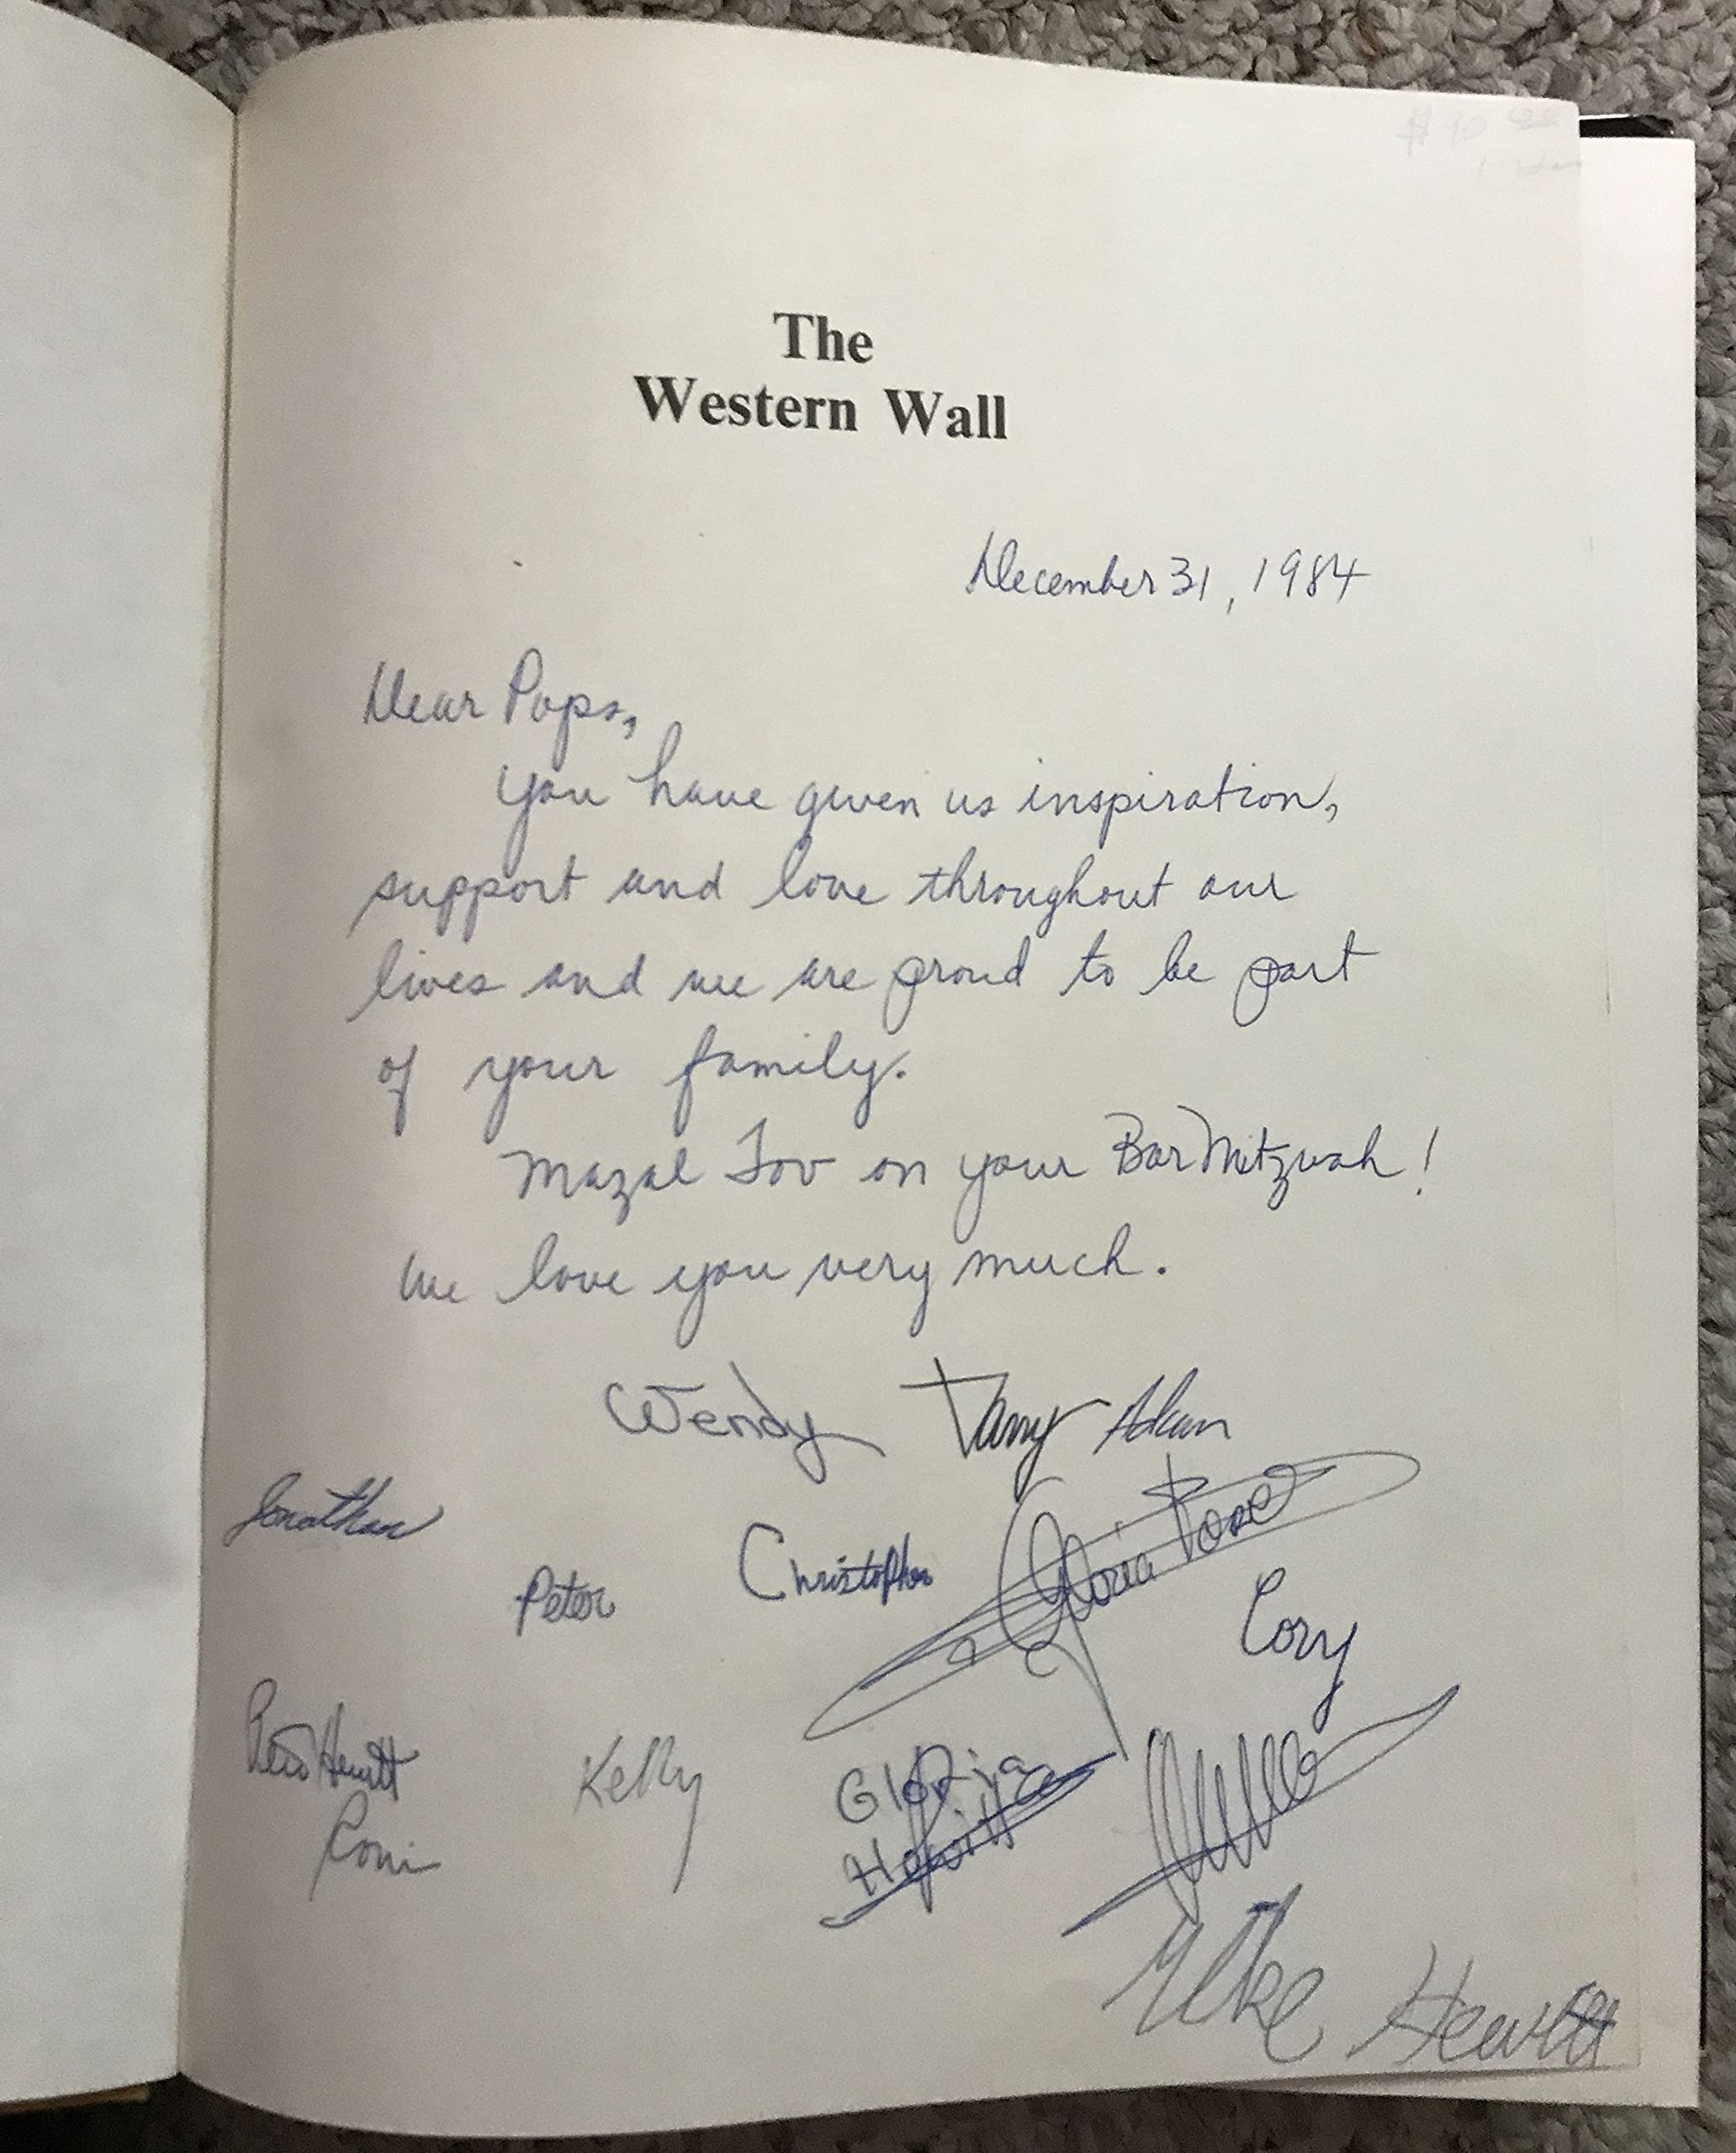 The
Western Wall
December 31, 1984
Dear Pops,
You have given us inspiration,
support and love throughout our
lives and we are proud to be part
of your family.
Mazal Tov on your Bar Mitzvah!
We love you very much.
Wendy Tamy Adam
Jonathan
Peter Christopher Gloria Rose
Cory
Hewitt
Kelly Gloria
Hewitt
Roni
Mike Hewitt